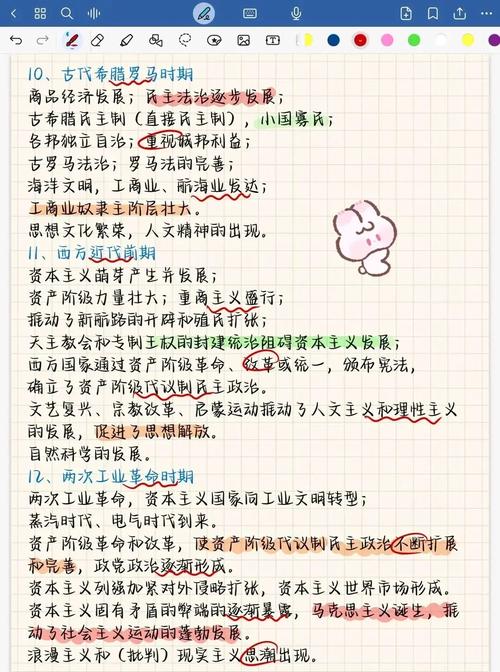 10、古代希腊罗马时期
商品经济发展；民主法治逐步发展；
古希腊民主制（直接民主制），小国寡民；
各邦独立自治；重视城邦利益；
古罗马法治；罗马法的完善；
海洋文明，工商业、航海业发达；
工商业奴隶主阶层壮大。
思想文化繁荣，人文精神的出现。
11、西方近代前期
资本主义萌芽产生并发展；
资产阶级力量壮大；重商主义盛行；
推动了新航路的开辟和殖民扩张；
天主教会和专制王权的封建统治阻碍资本主义发展；
西方国家通过资产阶级革命、改革或统一，颁布宪法，
确立了资产阶级代议制民主政治。
文艺复兴、宗教改革、启蒙运动推动了人文主义和理性主义
的发展，促进了思想解放。
自然科学的发展。
12、两次工业革命时期
两次工业革命，资本主义国家向工业文明转型；
蒸汽时代、电气时代到来。
资产阶级革命和改革，使资产阶级代议制民主政治不断扩展
和完善，政党政治逐渐形成。
资本主义列强加紧对外侵略扩张，资本主义世界市场形成。
资本主义固有矛盾的弊端的逐渐暴露，马克思主义诞生，推
动了社会主义运动的蓬勃发展。
浪漫主义和（批判）现实主义思潮出现。